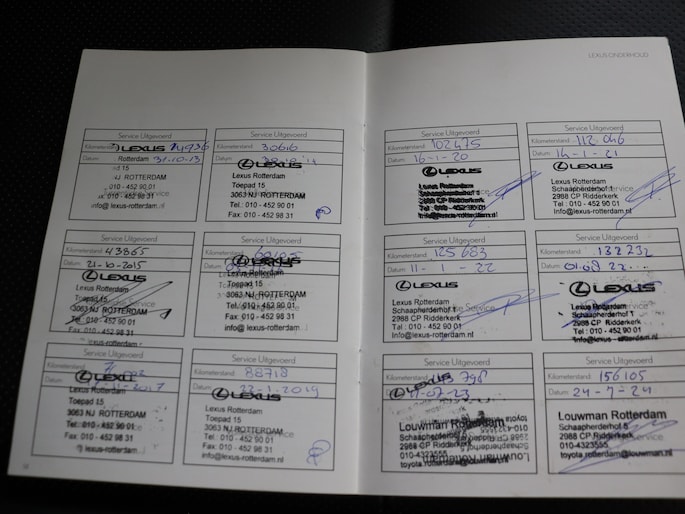 LEXUS ONDERHOUD
Service Uitgevoerd
Kilometerstand
LEXUS
Datum: Rotterdam 31-10-13
15
NJ ROTTERDAM
010 - 452 90 01
010 - 452 98 31
info@lexus-rotterdam.nl
Service Uitgevoerd
Kilometerstand 30616
Datum
LEXUS
Lexus Rotterdam
Toepad 15
3063 NJ ROTTERDAM
Tel.: 010 - 452 90 01
Fax: 010 - 452 98 31
Service Uitgevoerd
Kilometerstand 43865
Datum: 21-10-2015
LEXUS
Lexus Rotterdam
Toepad 15
3063 NJ ROTTERDAM
Tel. 010 - 452 90 01
Fax: 010 - 452 98 31
Service Uitgevoerd
LEXUS
Lexus Rotterdam
Toepad 15
3063 NJ ROTTERDAM
Tel.: 010 - 452 90 01
Fax: 010 - 452 98 31
info@lexus-rotterdam.nl
Service Uitgevoerd
LEXUS
Lexus Rotterdam
Toepad 15
3063 NJ ROTTERDAM
Tel.: 010 - 452 90 01
Fax: 010 - 452 98 31
lexus-rotterdam.nl
Service Uitgevoerd
Kilometerstand 88718
Datum: 22-1-2019
LEXUS
Lexus Rotterdam
Toepad 15
3063 NJ ROTTERDAM
Tel.: 010 - 452 90 01
Fax: 010 - 452 98 31
info@lexus-rotterdam.nl
12
Service Uitgevoerd
Kilometerstand 102475
Datum: 16-1-20
LEXUS
Lexus Rotterdam
Schaapherderhof 1
2988 CP Ridderkerk
Tel.: 010 - 452 90 01
info@lexus-rotterdam.nl
Service Uitgevoerd
Kilometerstand 112046
Datum: 14-1-21
LEXUS
Lexus Rotterdam
Schaapherderhof 1
2988 CP Ridderkerk
Tel : 010 - 452 90 01
Info@lexus-rotterdam.nl
Service Uitgevoerd
Kilometerstand 125683
Datum: 11-1-22
LEXUS
Lexus Rotterdam
Schaapherderhof 1
2988 CP Ridderkerk
Tel : 010 - 452 90 01
Info@lexus-rotterdam.nl
Service Uitgevoerd
Kilometerstand 132232
Datum:
LEXUS
Lexus Rotterdam
Schaapherderhof 1
2988 CP Ridderkerk
Tel : 010 - 452 90 01
Info@lexus-rotterdam.nl
Service Uitgevoerd
Kilometerstand
Datum:
LEXUS
Louwman Rotterdam
Schaapherderhof
2988 CP Ridderkerk
010-4323555
toyota.rotterdam@louwman.nl
Service Uitgevoerd
Kilometerstand 156105
Datum: 24-7-24
Louwman Rotterdam
Schaapherderhof
2988 CP Ridderkerk
010-4323555
toyota.rotterdam@louwman.nl